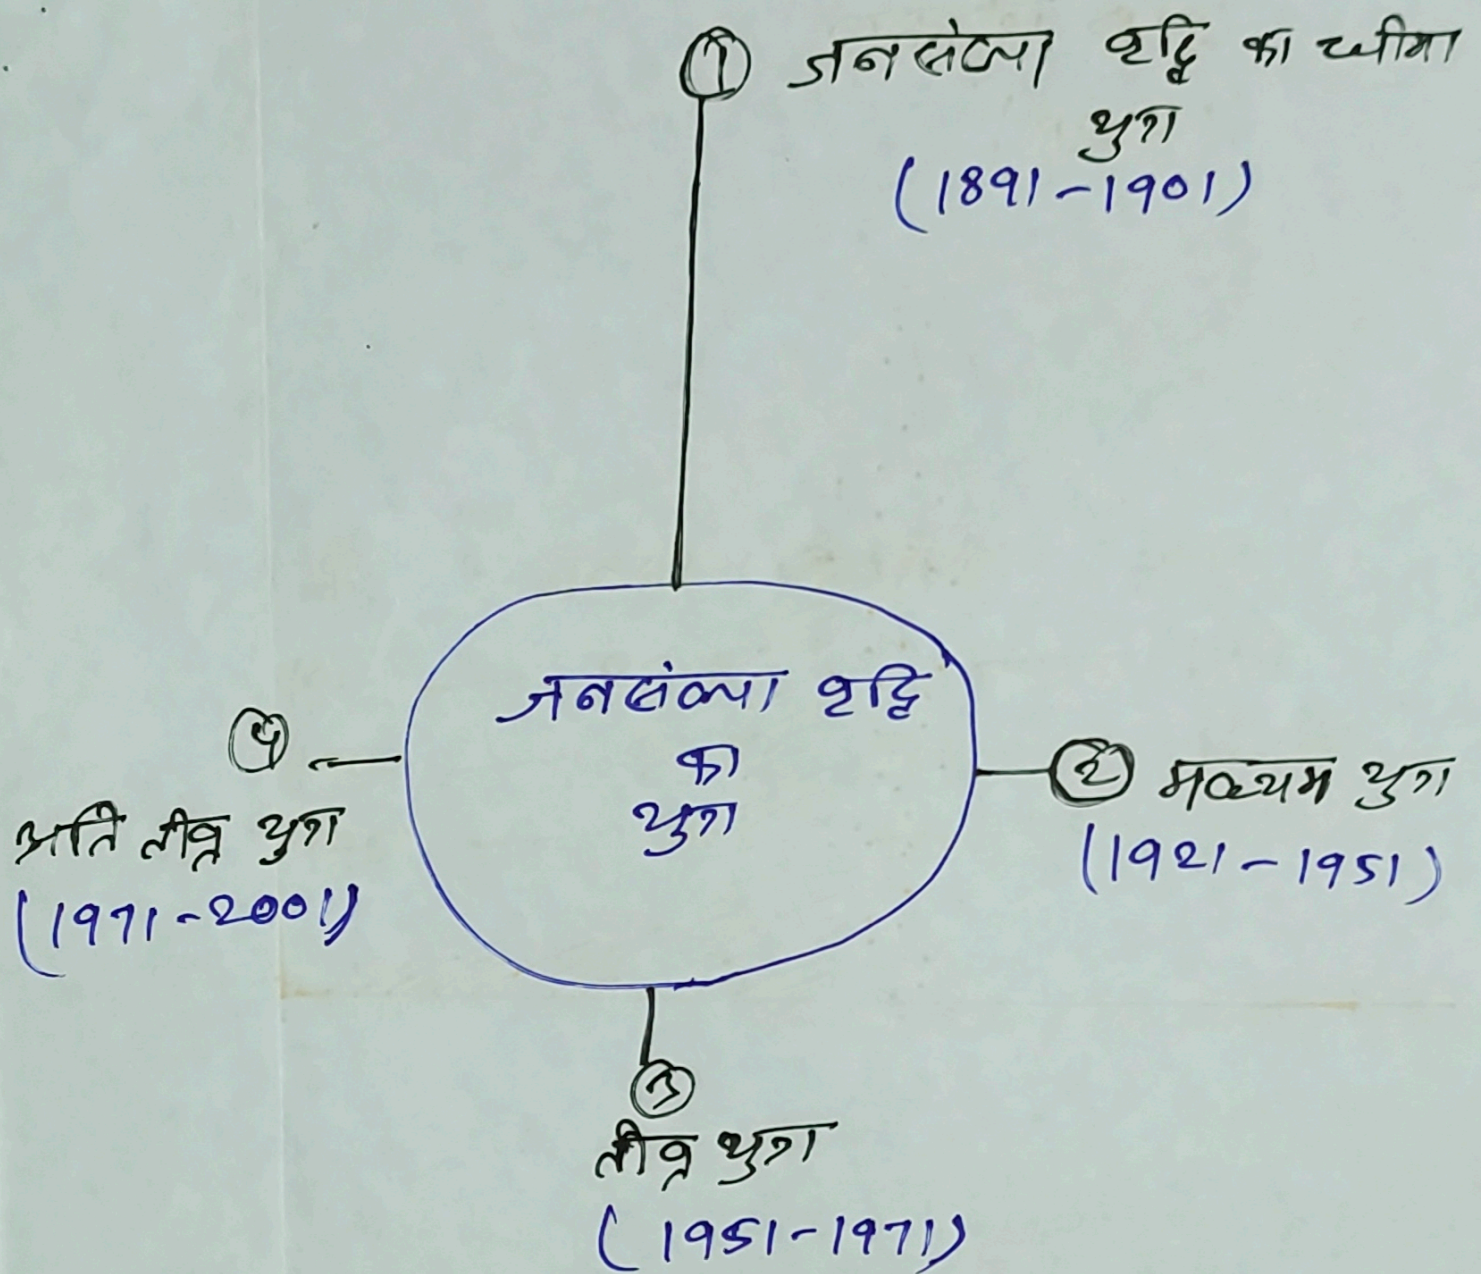 ① जनसंख्या वृद्धि का धीमा
युग
(1891-1901)
जनसंख्या वृद्धि
का
युग
② मध्यम युग
(1921-1951)
③
तीव्र युग
(1951-1971)
④
अति तीव्र युग
(1971-2001)